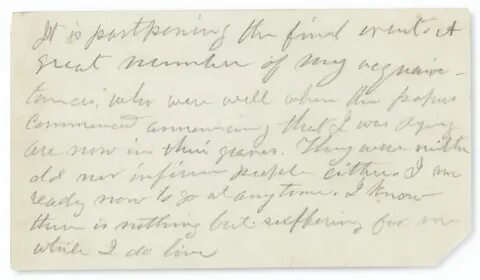 It is postponing the final event. A
great number of my acquain-
tances, who were well when the papers
commenced announcing that I was dying
are now in their graves. They were neither
old nor infirm people either. I am
ready now to go at any time. I know
there is nothing but suffering for me
while I do live